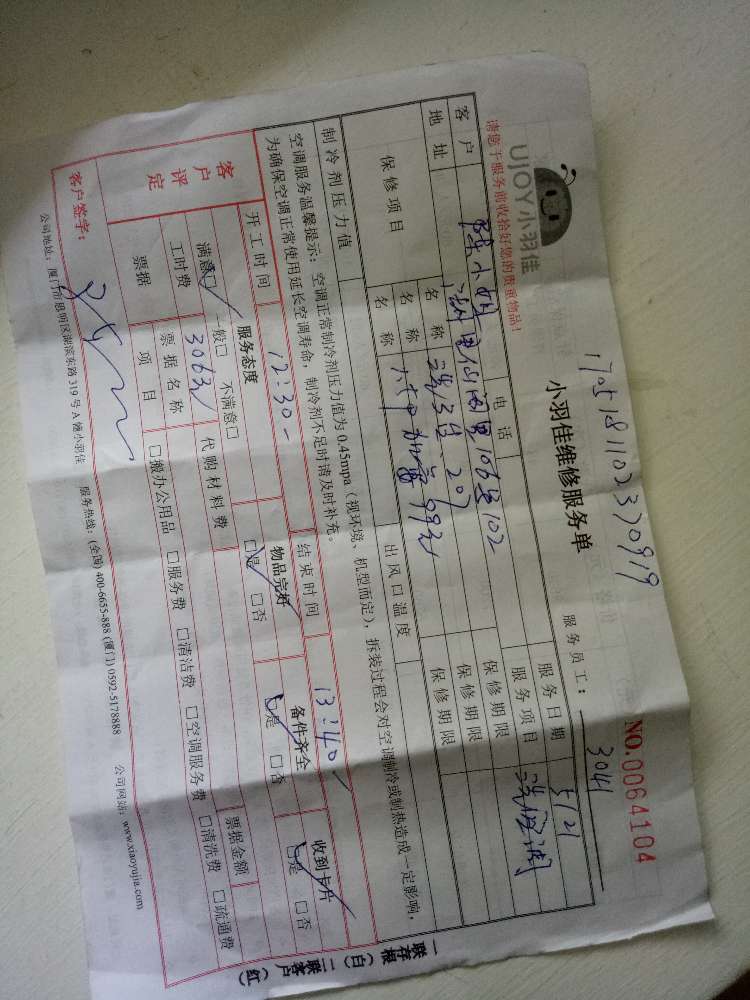 17051811023709​19
UJOY小羽佳
小羽佳维修服务单
NO.0064104
请您于服务前收拾好您的贵重物品!
服务员工: 3041
客户 陈小姐 电话 服务日期 5/21
地址 106号102 服务项目 洗空调
保修项目 名称 洗3台 保修期限
名称 保修期限
制冷剂压力值 出风口温度
空调服务温馨提示:空调正常制冷剂压力值为0.45mpa(视环境、机型而定),拆装过程会对空调制冷或制热造成一定影响,
为确保空调正常使用延长空调寿命,制冷剂不足时请及时补充。
开工时间 12:30 结束时间 13:40
客户评定 服务态度 物品完好 备件齐全 收到卡片
满意□ 一般□ 不满意□ □是 □否 □是 □否 □是 □否
工时费 306元 代购材料费
票据 票据名称 票据金额
项目 □搬办公用品 □服务费 □清洁费 □空调服务费 □清洗费 □疏通费
客户签字:
公司地址:厦门市思明区湖滨东路319号A幢小羽佳 服务热线:(全国)400-6655-888 (厦门)0592-5178888 公司网站:www.xiaoyujia.com
一联存根(白) 二联客户(红)